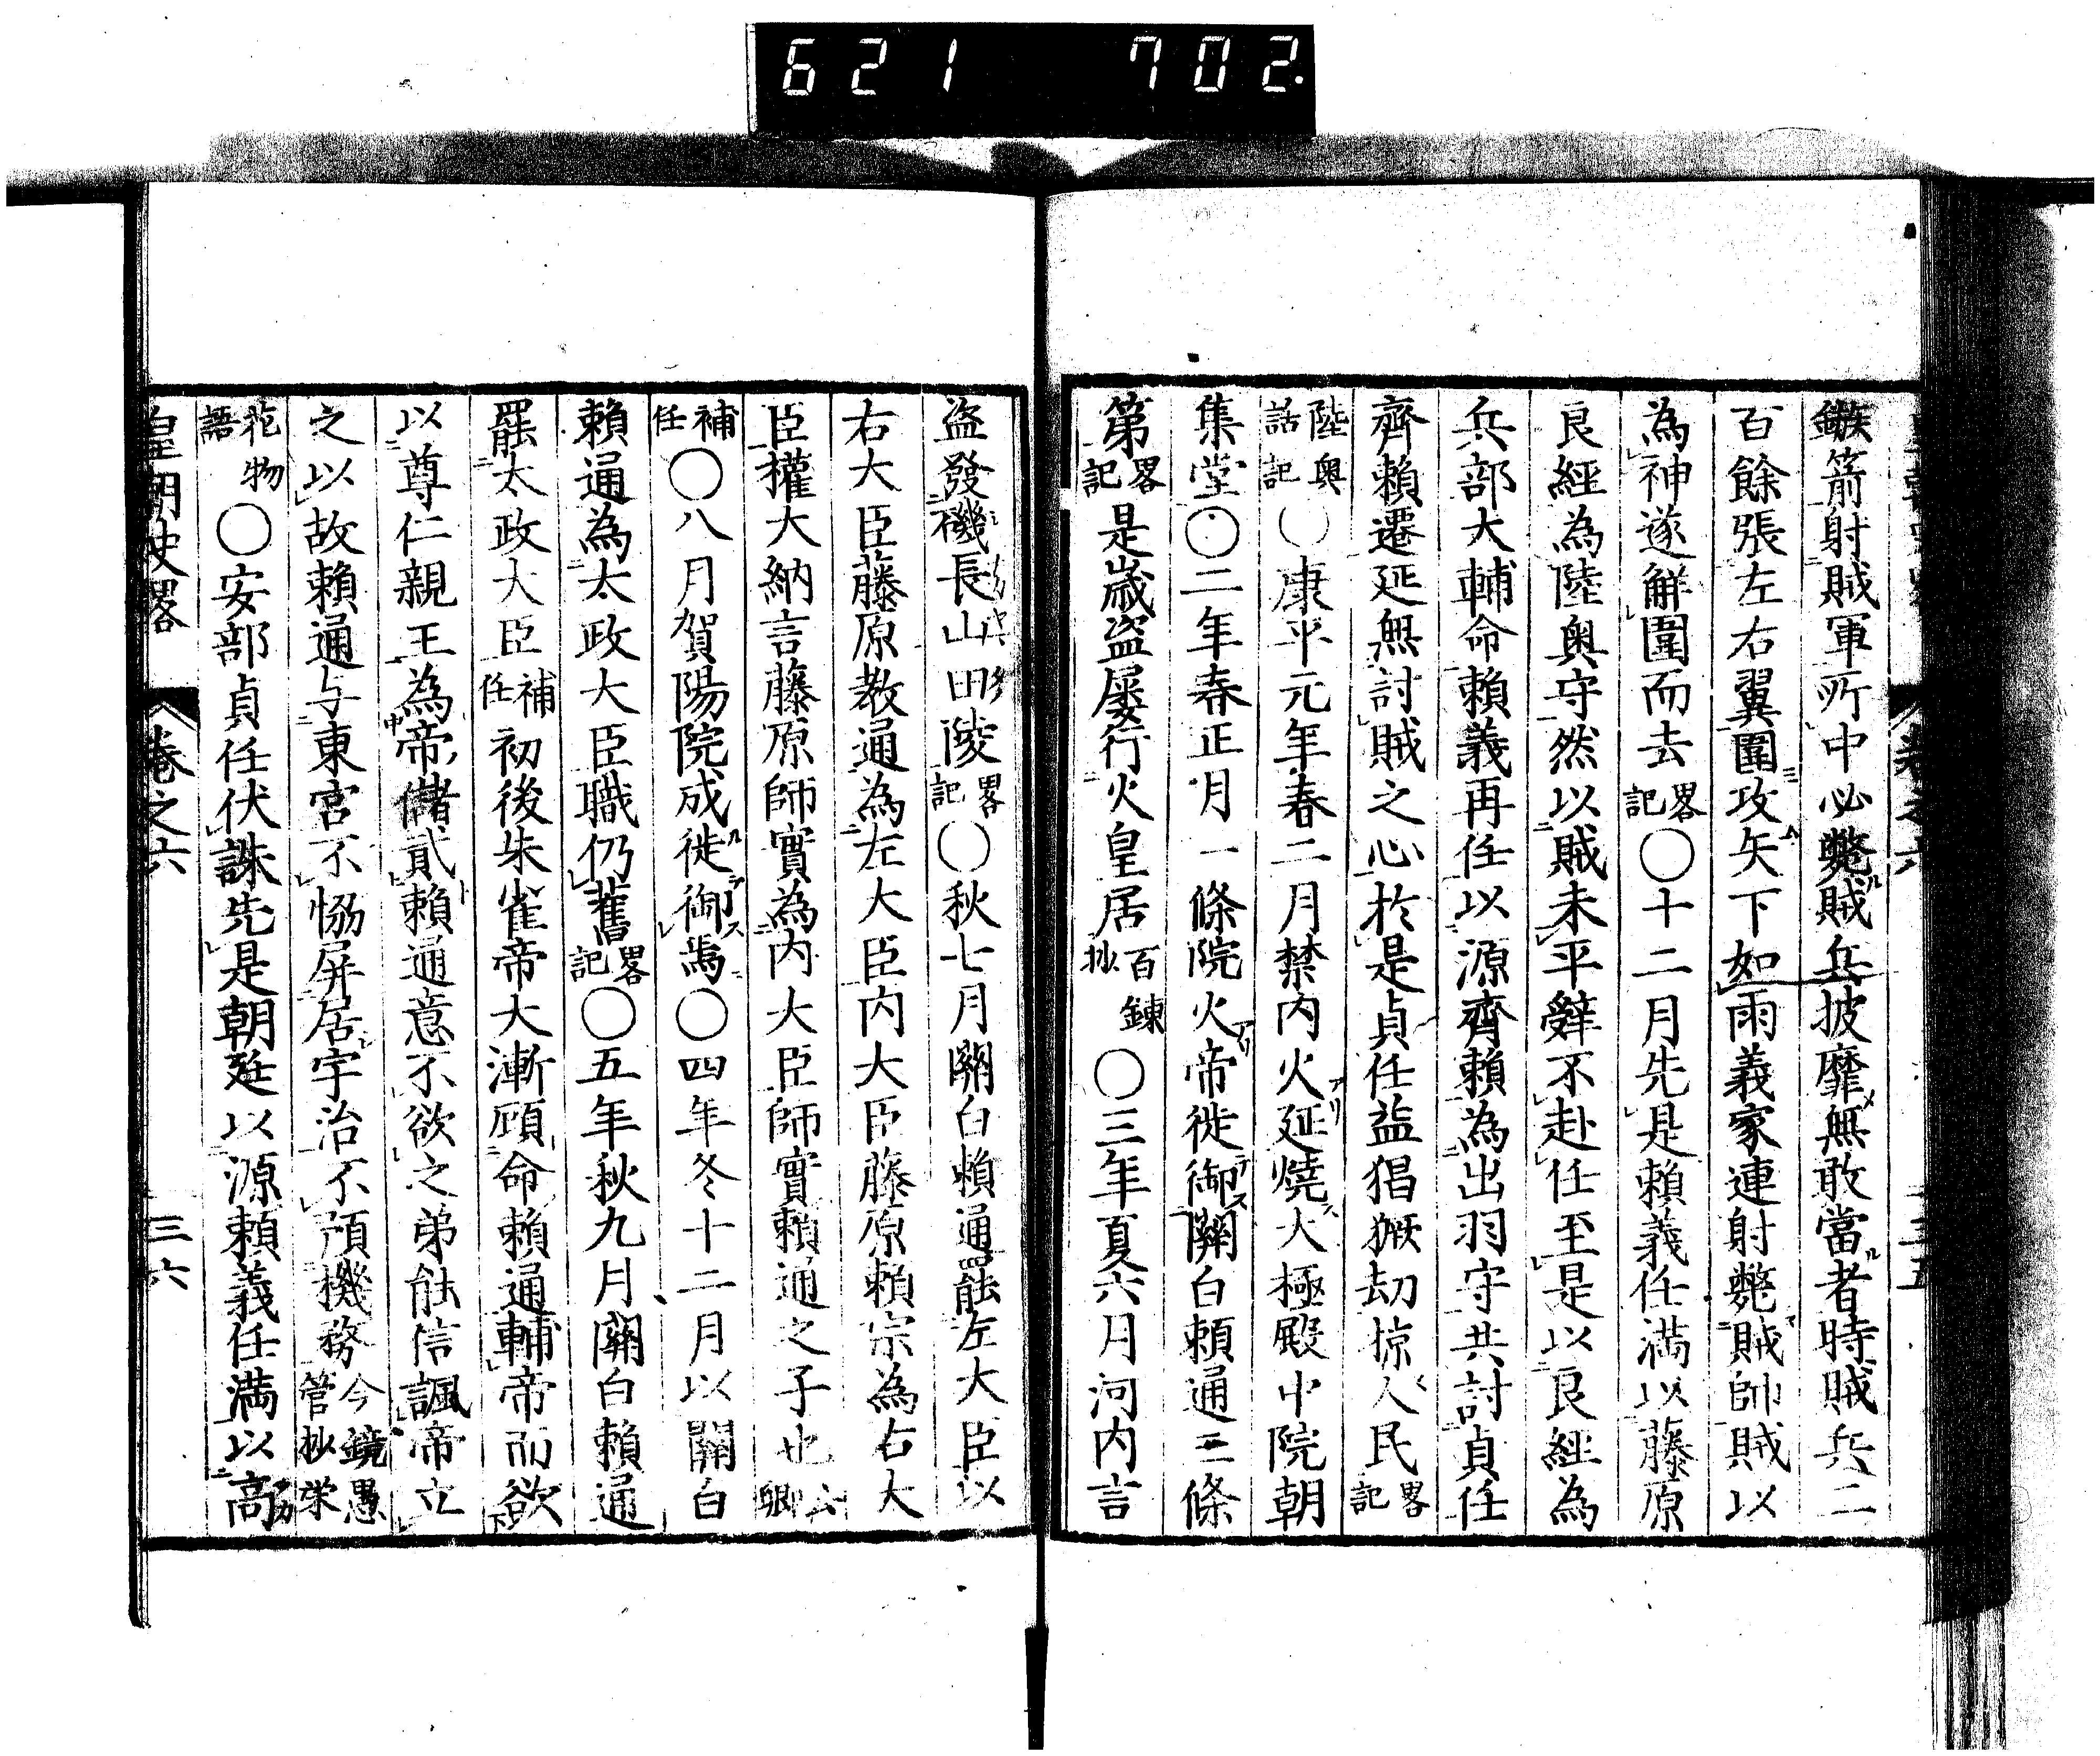 621 702.
鏃箭射賊軍所中必斃賊兵披靡無敢當者時賊兵二
百餘張左右翼圍攻矢下如雨義家連射斃賊帥賊以
為神遂解圍而去畧記〇十二月先是賴義任満以藤原
良經為陸奥守然以賊未平辭不赴任至是以良經為
兵部大輔命賴義再任以源齊賴為出羽守共討貞任
齊賴遷延無討賊之心於是貞任益猖獗刧掠人民畧記
陸奥話記〇康平元年春二月禁内火延燒大極殿中院朝
集堂〇二年春正月一條院火帝徙御關白賴通三條
第畧記是歳盗屡行火皇居百錬抄〇三年夏六月河内言
盗發磯長山田陵畧記〇秋七月關白賴通罷左大臣以
右大臣藤原教通為左大臣内大臣藤原賴宗為右大
臣權大納言藤原師實為内大臣師實賴通之子也公卿
補任〇八月賀陽院成徙御焉〇四年冬十二月以關白
賴通為太政大臣職仍舊畧記〇五年秋九月關白賴通
罷太政大臣補任初後朱雀帝大漸顧命賴通輔帝而欲
以尊仁親王為帝儲貳賴通意不欲之弟能信諷帝立
之以故賴通与東宮不恊屏居宇治不預機務今鏡愚管抄栄
花物語〇安部貞任伏誅先是朝廷以源賴義任満以高
皇朝史畧 卷之六 三六